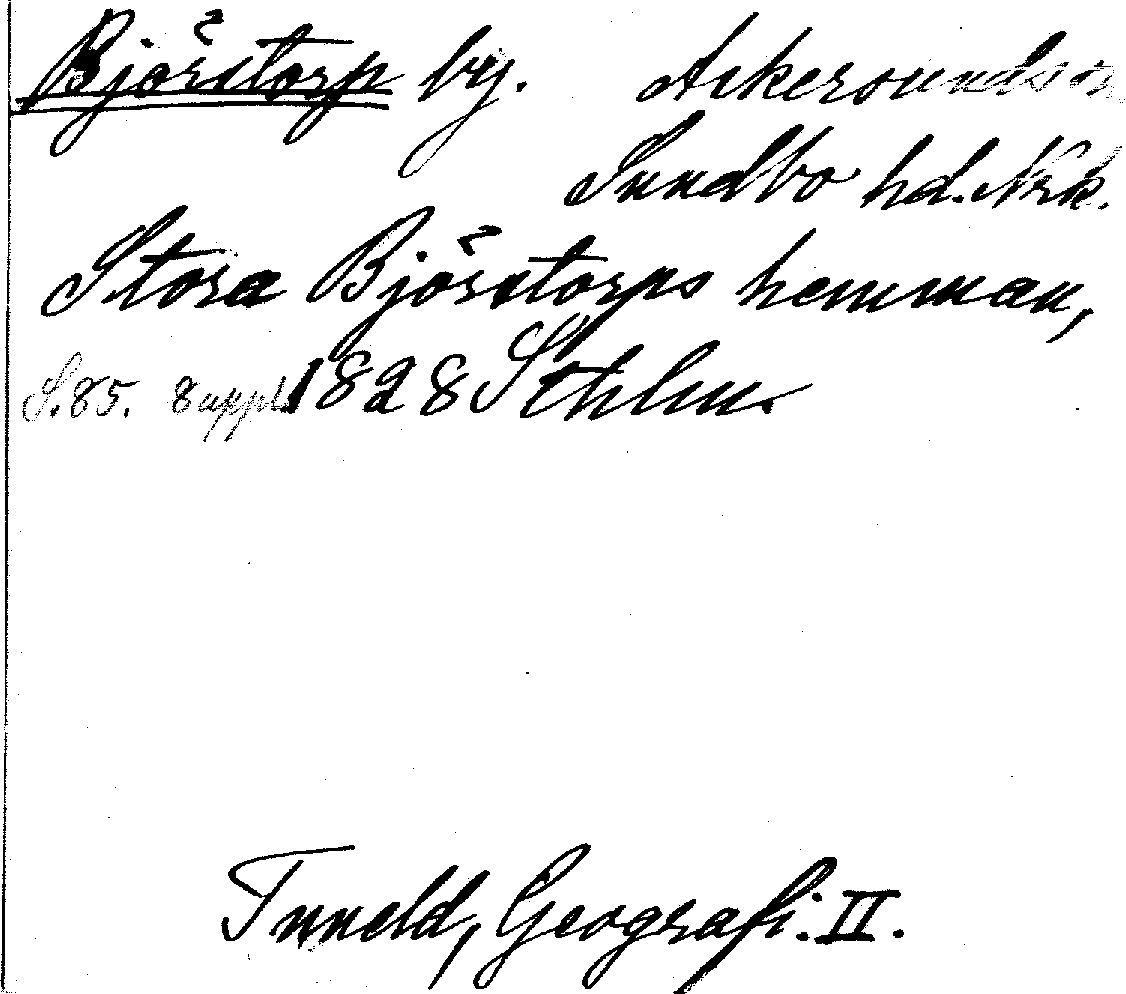 Björstorp by. Askersunds sn
Sundbo hd. Nrk.
Stora Björstorps hemman,
S. 85. 8 uppl. 1828 Sthlm.
Tuneld, Geografi. II.